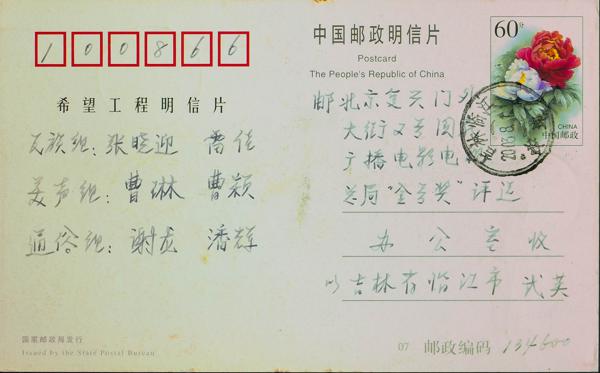 100866
中国邮政明信片
Postcard
The People's Republic of China
60分
CHINA
中国邮政
希望工程明信片
民族组:张晓迎 雷佳
美声组:曹琳 曹颖
通俗组:谢龙 潘辉
邮北京复兴门外
大街2号国
广播电影电
总局"金号奖"评选
办公室收
吉林省临江市 武英
国家邮政局发行
Issued by the State Postal Bureau
07 邮政编码 134600